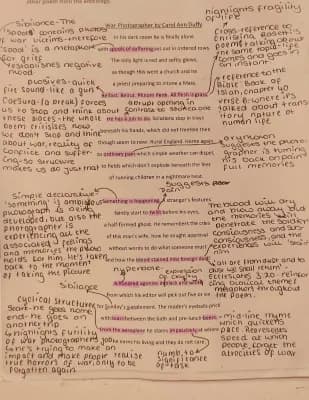 other poem from the anthology.
highlights fragility of life
War Photographer by Carol Ann Duffy
In his dark room he is finally alone
with spools of suffering set out in ordered rows.
The only light is red and softly glows,
as though this were a church and he
a priest preparing to intone a Mass.
Belfast. Beirut. Phnom Penh. All flesh is grass.
He has a job to do. Solutions slop in trays
beneath his hands, which did not tremble then
though seem to now. Rural England. Home again
to ordinary pain which simple weather can dispel,
to fields which don't explode beneath the feet
of running children in a nightmare heat.
Something is happening. A stranger's features
faintly start to twist before his eyes,
a half-formed ghost. He remembers the cries
of this man's wife, how he sought approval
without words to do what someone must
and how the blood stained into foreign dust.
A hundred agonies in black and white
from which his editor will pick out five or six
for Sunday's supplement. The reader's eyeballs prick
with tears between the bath and pre-lunch beers.
From the aeroplane he stares impassively at where
he earns his living and they do not care.
Sibilance - The
"spools" contains photos
of war victims - therefore
"spool" is a metaphor
for grief
establishes negative
mood
plosives - quick
fire sound - like a gun
Caesura (to break) forces
us to stop and think about
these places - the whole
poem
we don't stop and think
about war, reality of
conflict and suffer-
ing - so structure
makes us do just that
abrupt opening in
contrast to
cross-reference to
Christina Rossetti
poem talking about
the same topic - life
comes and goes in
an instant.
reference to the
Bible Book of
Isian, chapter 40
verse 6, where it's
talked about trans
itory nature of
human life.
oxymoron
suggests the photo-
grapher is turning
his back on pain
full memories
Simple declarative
"something" is ambiguous
photograph is being
developed, but also the
photographer is
experiencing all the
associated feelings
and memories the photo
holds for him. It's taken
back to the moment
of taking the picture
suggests
pain
The blood will dry
and blow away but
the memories will
penetrate the soldier
consciousness and sub-
consciousness, and the
experience will stain
him
"You are from dust and to
dust we shall return" -
Ecclesiastes 3:20 - reinforc
ing biblical theme/
metaphor throughout
the poem.
hyperbole
Sibilance
cyclical structure
start - he goes home
end - he goes on
another trip
highlights futility
of war photographers job
he's trying to make an
impact and make people realise
true horrors of war, only to be
forgotten again
numb to
significance
of task
mid-line rhyme
which quickens
pace. Represents
speed at which
people forget the
atrocities of war